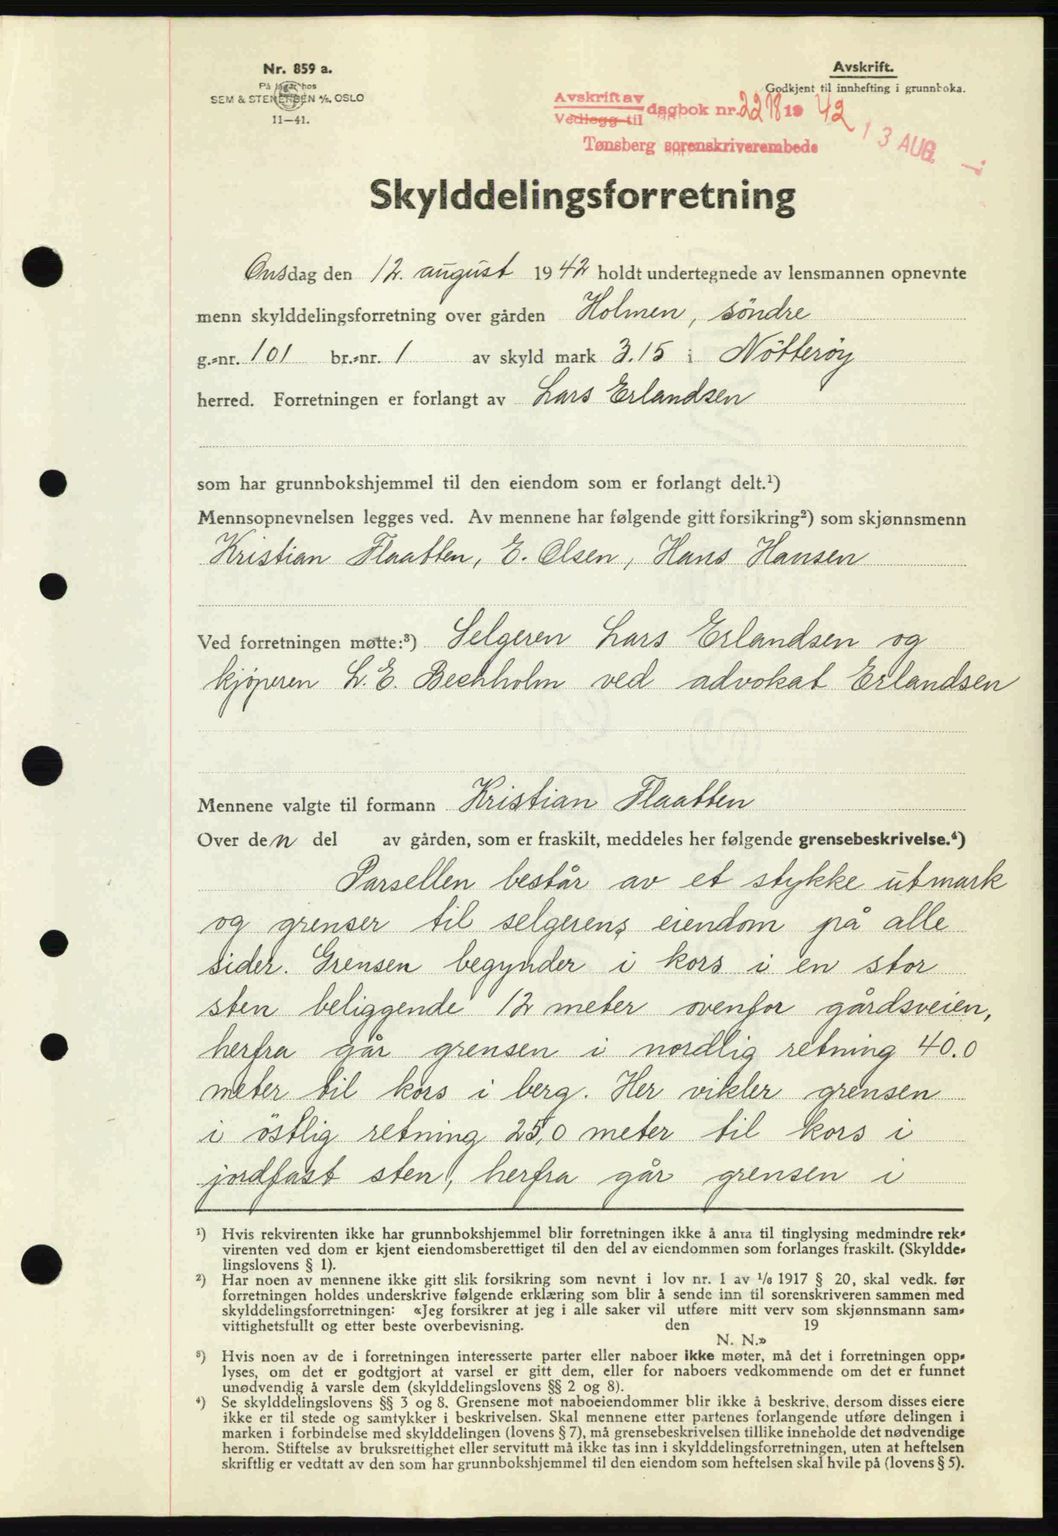 Nr. 859 a.
På lager hos
SEM & STENERSEN A/S, OSLO
11—41.
Avskrift.
Godkjent til innhefting i grunnboka.
Avskrift av
Vedlegg til dagbok nr. 2278 19 42
Tønsberg sorenskriverembede
13 AUG.
Skylddelingsforretning
Onsdag den 12. august 1942 holdt undertegnede av lensmannen opnevnte
menn skylddelingsforretning over gården Holmen, söndre
g.-nr. 101 br.-nr. 1 av skyld mark 3.15 i Nötteröy
herred. Forretningen er forlangt av Lars Erlandsen
som har grunnbokshjemmel til den eiendom som er forlangt delt.¹)
Mennsopnevnelsen legges ved. Av mennene har følgende gitt forsikring²) som skjønnsmenn
Kristian Flaatten, E. Olsen, Hans Hansen
Ved forretningen møtte:³) Selgeren Lars Erlandsen og
kjöperen L. E. Bechholm ved advokat Erlandsen
Mennene valgte til formann Kristian Flaatten
Over den del av gården, som er fraskilt, meddeles her følgende grensebeskrivelse.⁴)
Parsellen består av et stykke utmark
og grenser til selgerens eiendom på alle
sider. Grensen begynder i kors i en stor
sten beliggende 12 meter ovenfor gårdsveien,
herfra går grensen i nordlig retning 40.0
meter til kors i berg. Her vikler grensen
i östlig retning 25,0 meter til kors i
jordfast sten, herfra går grensen i
¹) Hvis rekvirenten ikke har grunnbokshjemmel blir forretningen ikke å anta til tinglysing medmindre rek-
virenten ved dom er kjent eiendomsberettiget til den del av eiendommen som forlanges fraskilt. (Skyldde-
lingslovens § 1).
²) Har noen av mennene ikke gitt slik forsikring som nevnt i lov nr. 1 av 1/6 1917 § 20, skal vedk. før
forretningen holdes underskrive følgende erklæring som blir å sende inn til sorenskriveren sammen med
skylddelingsforretningen: «Jeg forsikrer at jeg i alle saker vil utføre mitt verv som skjønnsmann sam-
vittighetsfullt og etter beste overbevisning. den 19
N. N.»
³) Hvis noen av de i forretningen interesserte parter eller naboer ikke møter, må det i forretningen opp-
lyses, om det er godtgjort at varsel er gitt dem, eller for naboers vedkommende om det er funnet
unødvendig å varsle dem (skylddelingslovens §§ 2 og 8).
⁴) Se skylddelingslovens §§ 3 og 8. Grensene mot naboeiendommer blir ikke å beskrive, dersom disses eiere
ikke er til stede og samtykker i beskrivelsen. Skal mennene etter partenes forlangende utføre delingen i
marken i forbindelse med skylddelingen (lovens § 7), må grensebeskrivelsen tillike inneholde det nødvendige
herom. Stiftelse av bruksrettighet eller servitutt må ikke tas inn i skylddelingsforretningen, uten at heftelsen
skriftlig er vedtatt av den som har grunnbokshjemmel til den eiendom som heftelsen skal hvile på (lovens § 5).